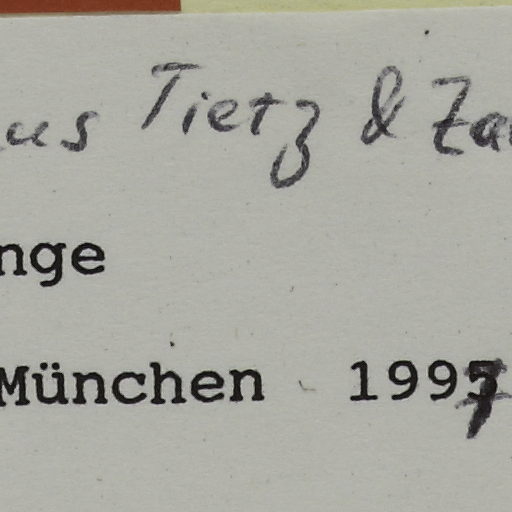 us Tietz & Za
nge
München 1997